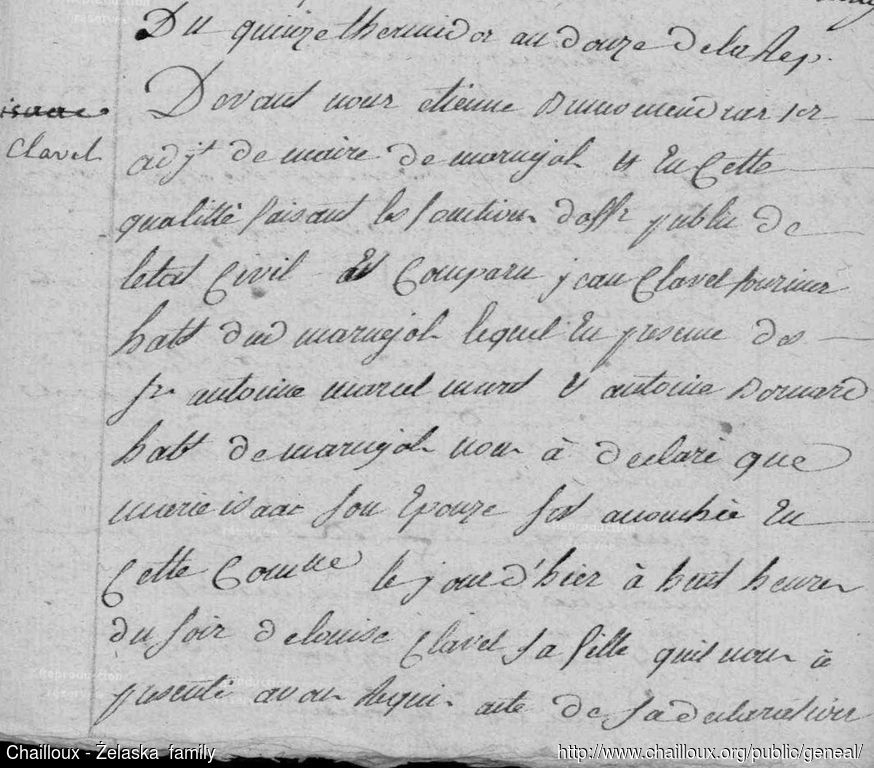 Du quinze thermidor an douze de la Rep.
isaac
Clavel
Devant nous etienne 1er
adjt de maire de maruejol et En Cette
qualitté faisant les fonctions doffr public de
letat Civil Est Comparu jean Clavel
habt dud maruejol lequel En presence des
srs antoine marcel & antoine
habt de maruejol nous à declaré que
marie isaac son Epouze sest accouchée En
Cette Comune le jour d'hier à huit heures
du soir de louise Clavel sa fille quil nous à
presenté avons requis acte de sa declaration
Reproduction
réservée
Chailloux - Żelaska family
http://www.chailloux.org/public/geneal/